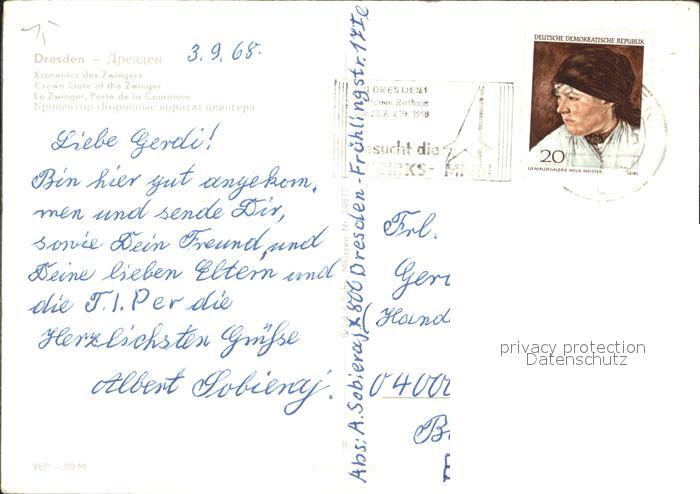 Dresden – Дрезден
3.9.68.
Kronentor des Zwingers
Crown Gate of the Zwinger
Le Zwinger, Porte de la Couronne
Кронентор (Коронные ворота) цвингера
Liebe Gerdi!
Bin hier gut angekom,
men und sende Dir,
sowie Dein Freund, und
Deine lieben Eltern und
die T.I.Per die
Herzlichsten Grüße
Albert Sobieraj.
VEP –,20 M
Abs: A. Sobieraj, x 806 Dresden-Frühlingstr. 17Ie
DRESDEN!
Neuen Rathaus
sucht die
BEZIRKS- MMM
DEUTSCHE DEMOKRATISCHE REPUBLIK
20
GEMÄLDEGALERIE NEUE MEISTER LEIBL
Frl.
Ger
(Hand
0400
B
privacy protection
Datenschutz